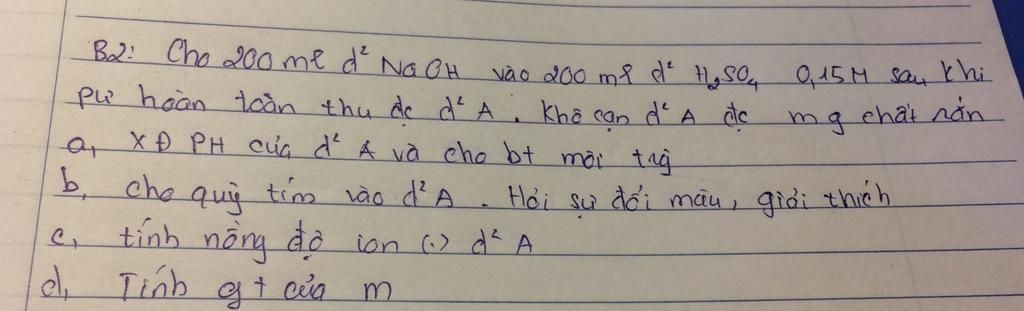 B2: Cho 200 ml d² NaOH vào 200 ml d² H₂SO₄ 0,15M sau khi
pư hoàn toàn thu đc d² A. Khô cạn d² A đc m g chất rắn
a, XĐ PH của d² A và cho bt môi trg
b, cho quỳ tím vào d² A. Hỏi sự đổi màu, giải thích
c, tính nồng độ ion (.) d² A
d, Tính gt của m